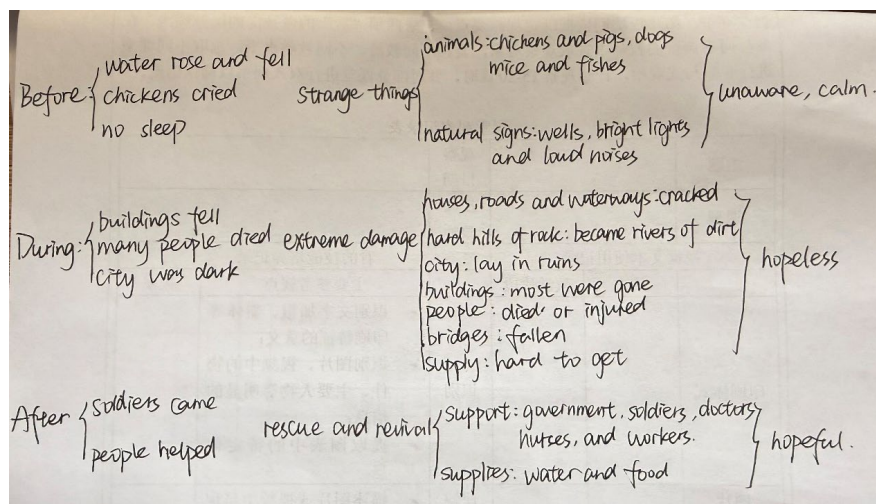 Before:
water rose and fell
chickens cried
no sleep
strange things
animals: chickens and pigs, dogs
mice and fishes
natural signs: wells, bright lights
and loud noises
unaware, calm.
During:
buildings fell
many people died
city was dark
extreme damage
houses, roads and waterways: cracked
hard hills of rock: became rivers of dirt
city: lay in ruins
buildings: most were gone
people: died or injured
bridges: fallen
supply: hard to get
hopeless
After
soldiers came
people helped
rescue and revival
support: government, soldiers, doctors,
nurses, and workers.
supplies: water and food
hopeful.